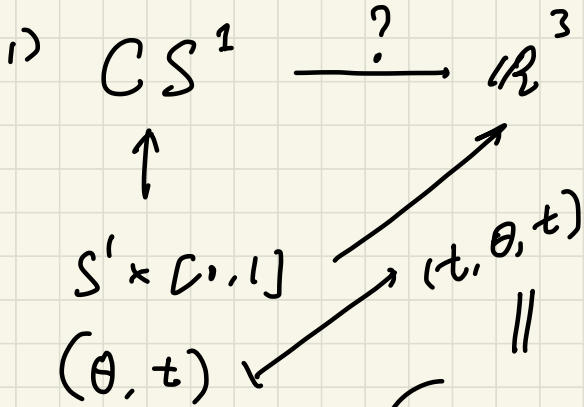 1) CS¹ ? ℝ³
S¹ × [0,1]
(θ, t) (t, θ, t)
||